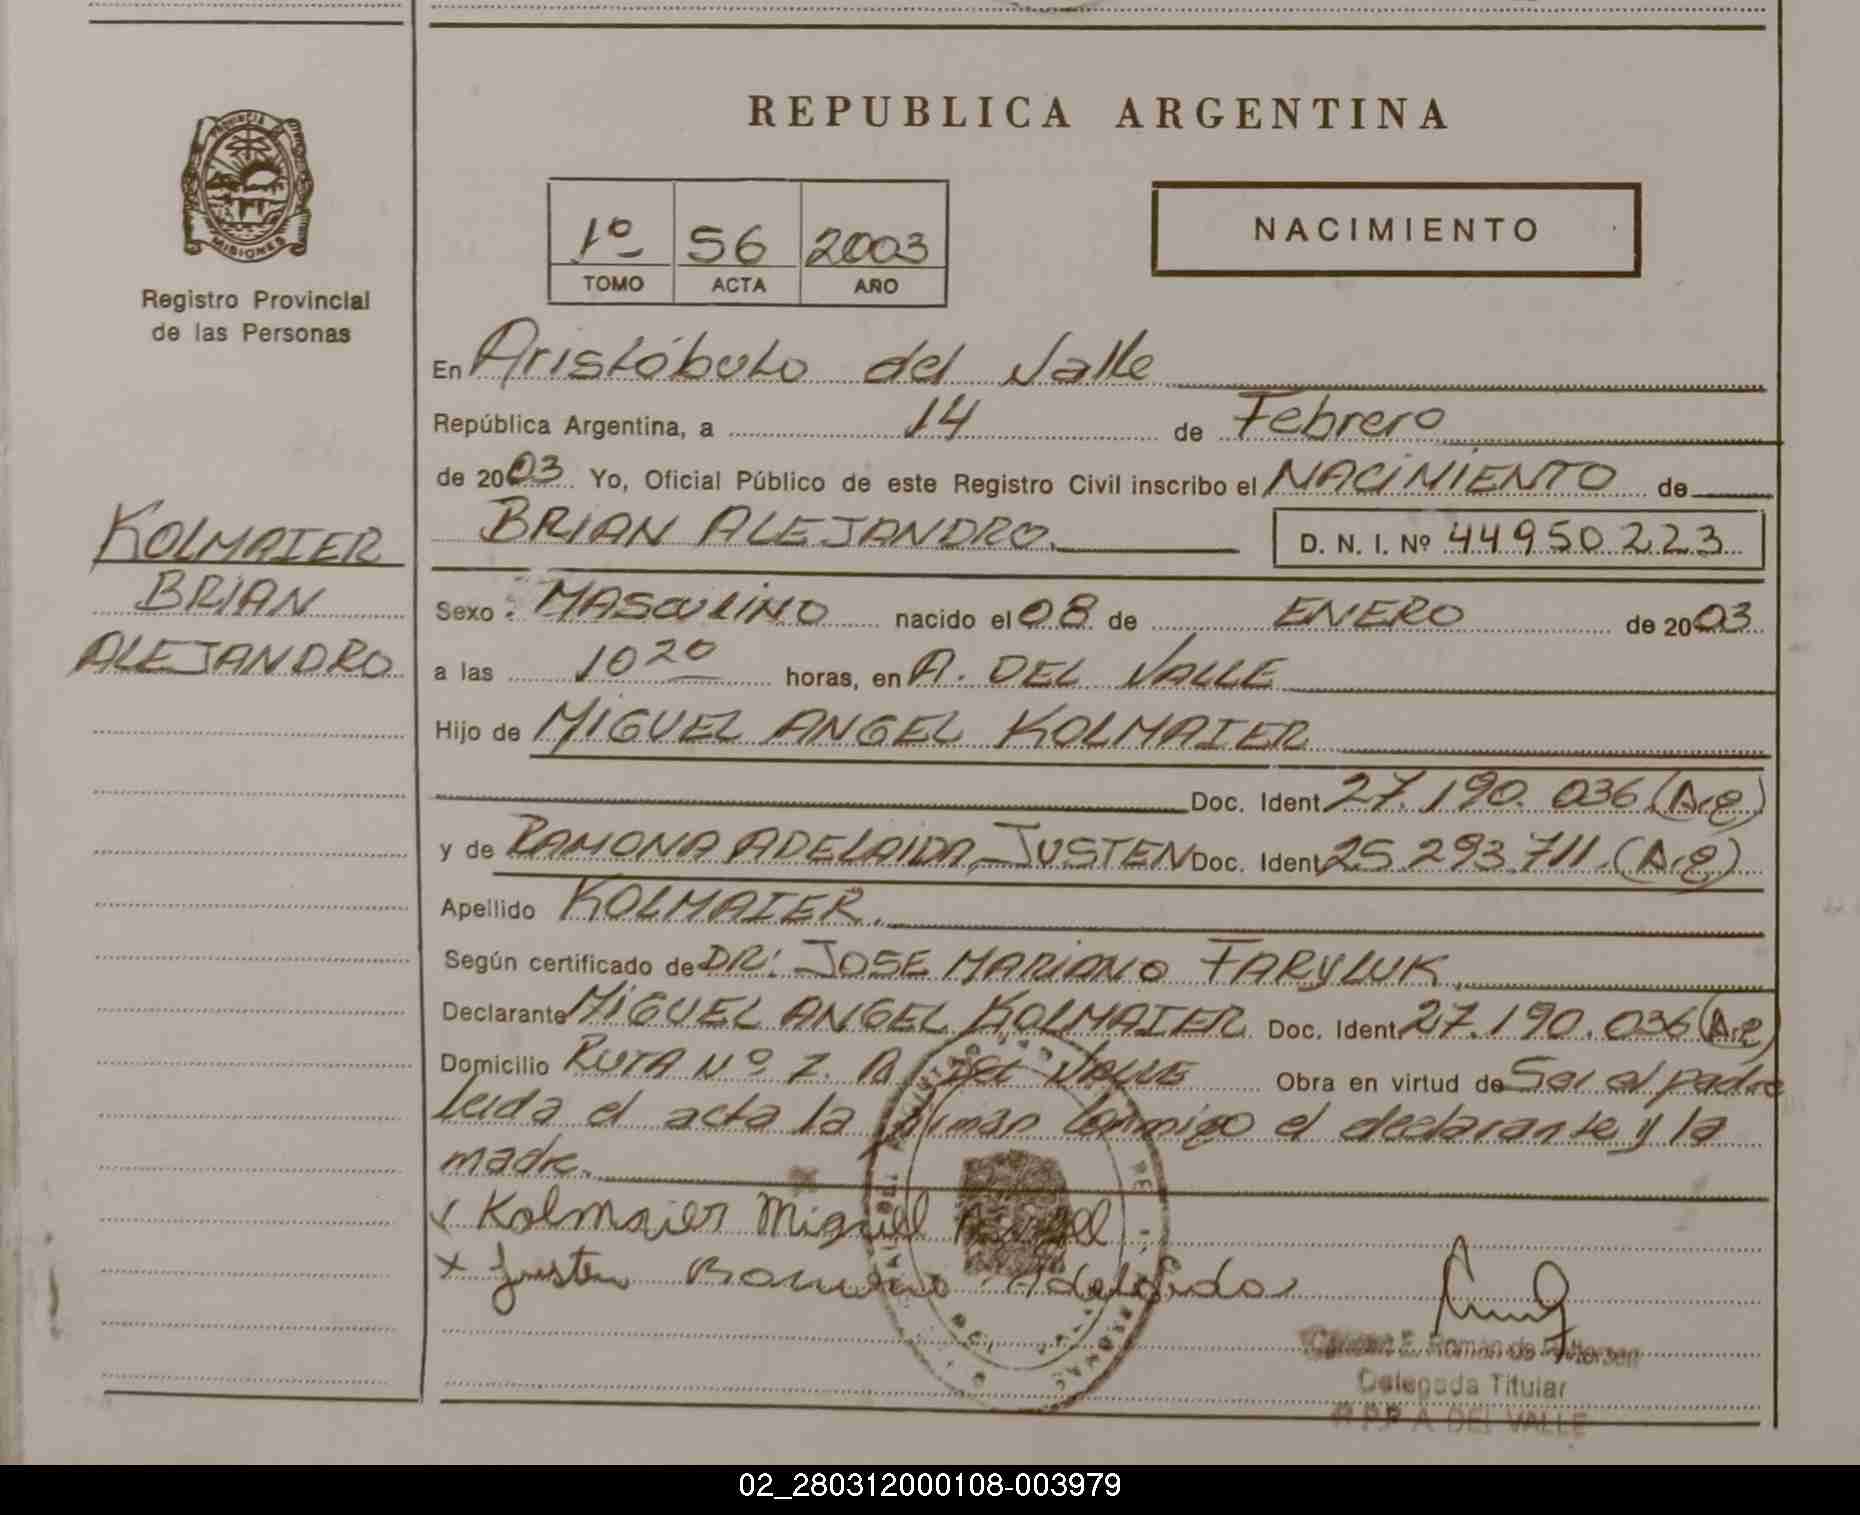 REPUBLICA ARGENTINA
PROVINCIA DE
MISIONES
Registro Provincial
de las Personas
1º 56 2003
TOMO ACTA AÑO
NACIMIENTO
En Aristóbulo del Valle
República Argentina, a 14 de Febrero
de 2003 Yo, Oficial Público de este Registro Civil inscribo el NACIMIENTO de
BRIAN ALEJANDRO. D. N. I. Nº 44950223
KOLMAIER
BRIAN
ALEJANDRO
Sexo: MASCULINO nacido el 08 de ENERO de 2003
a las 10 20 horas, en A. DEL VALLE
Hijo de MIGUEL ANGEL KOLMAIER
Doc. Ident. 27.190.036 (Arg)
y de RAMONA ADELAIDA JUSTEN Doc. Ident. 25.293.711. (Arg)
Apellido KOLMAIER.
Según certificado de DR: JOSE MARIANO FARYLUK
Declarante MIGUEL ANGEL KOLMAIER Doc. Ident. 27.190.036 (Arg)
Domicilio RUTA Nº 7. A. DEL VALLE Obra en virtud de Ser el padre
leida el acta la firman conmigo el declarante y la
madre.
Kolmaier Miguel Angel
x Justen Ramona Adelaida
E. Román de
Delegada Titular
R.P.P. A. DEL VALLE
02_280312000108-003979